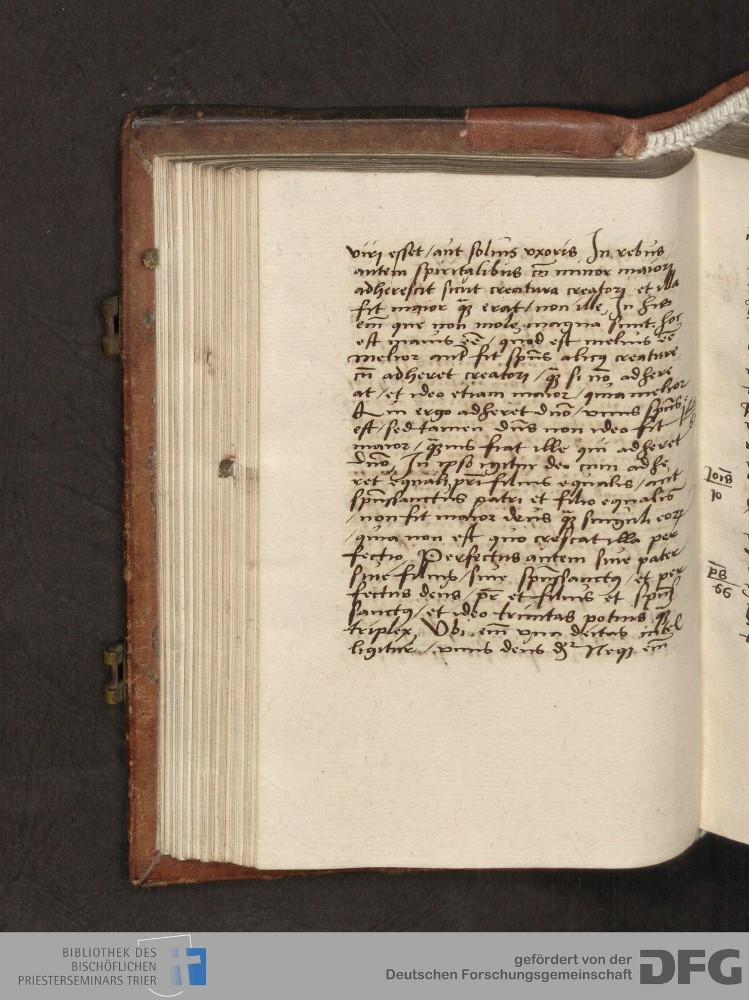 viri esset / aut solius vxoris In rebus
autem spiritalibus cū minor maiori
adherescit sicut creatura creatori et illa
fit maior q̄ꝫ erat / non ille, In his
em̄ que non mole magna sunt hoc
est maius eē / quod est melius eē
melior aut̄ fit spūs alicꝯ creature
cū adheret creatori / q̄ꝫ si nō adhere
at / et ideo etiam maior / quia melior
Qui ergo adheret dn̄o / vnus spūs
est / sed tamen dn̄s non ideo fit
maior / q̄ꝫuis fiat ille qui adheret
dn̄o, In ipso igitur deo cum adhe
ret equali pr̄i filius equalis / aut
spūssanctus patri et filio equalis
/ non fit maior deus q̄ꝫ singuli eoꝝ
/ quia non est quo crescat illa per
fectio Perfectus autem siue pater
siue filius / siue spūssanctꝯ / et per
fectus deus / pr̄ et filius et spūs
sanctꝯ / et ideo trinitas potius q̄ꝫ
triplex, Vbi em̄ vna deitas intel
ligitur / vnus deus dr̄ Neqꝫ em̄
Iois
10
ps
66
BIBLIOTHEK DES
BISCHÖFLICHEN
PRIESTERSEMINARS TRIER
gefördert von der
Deutschen Forschungsgemeinschaft
DFG